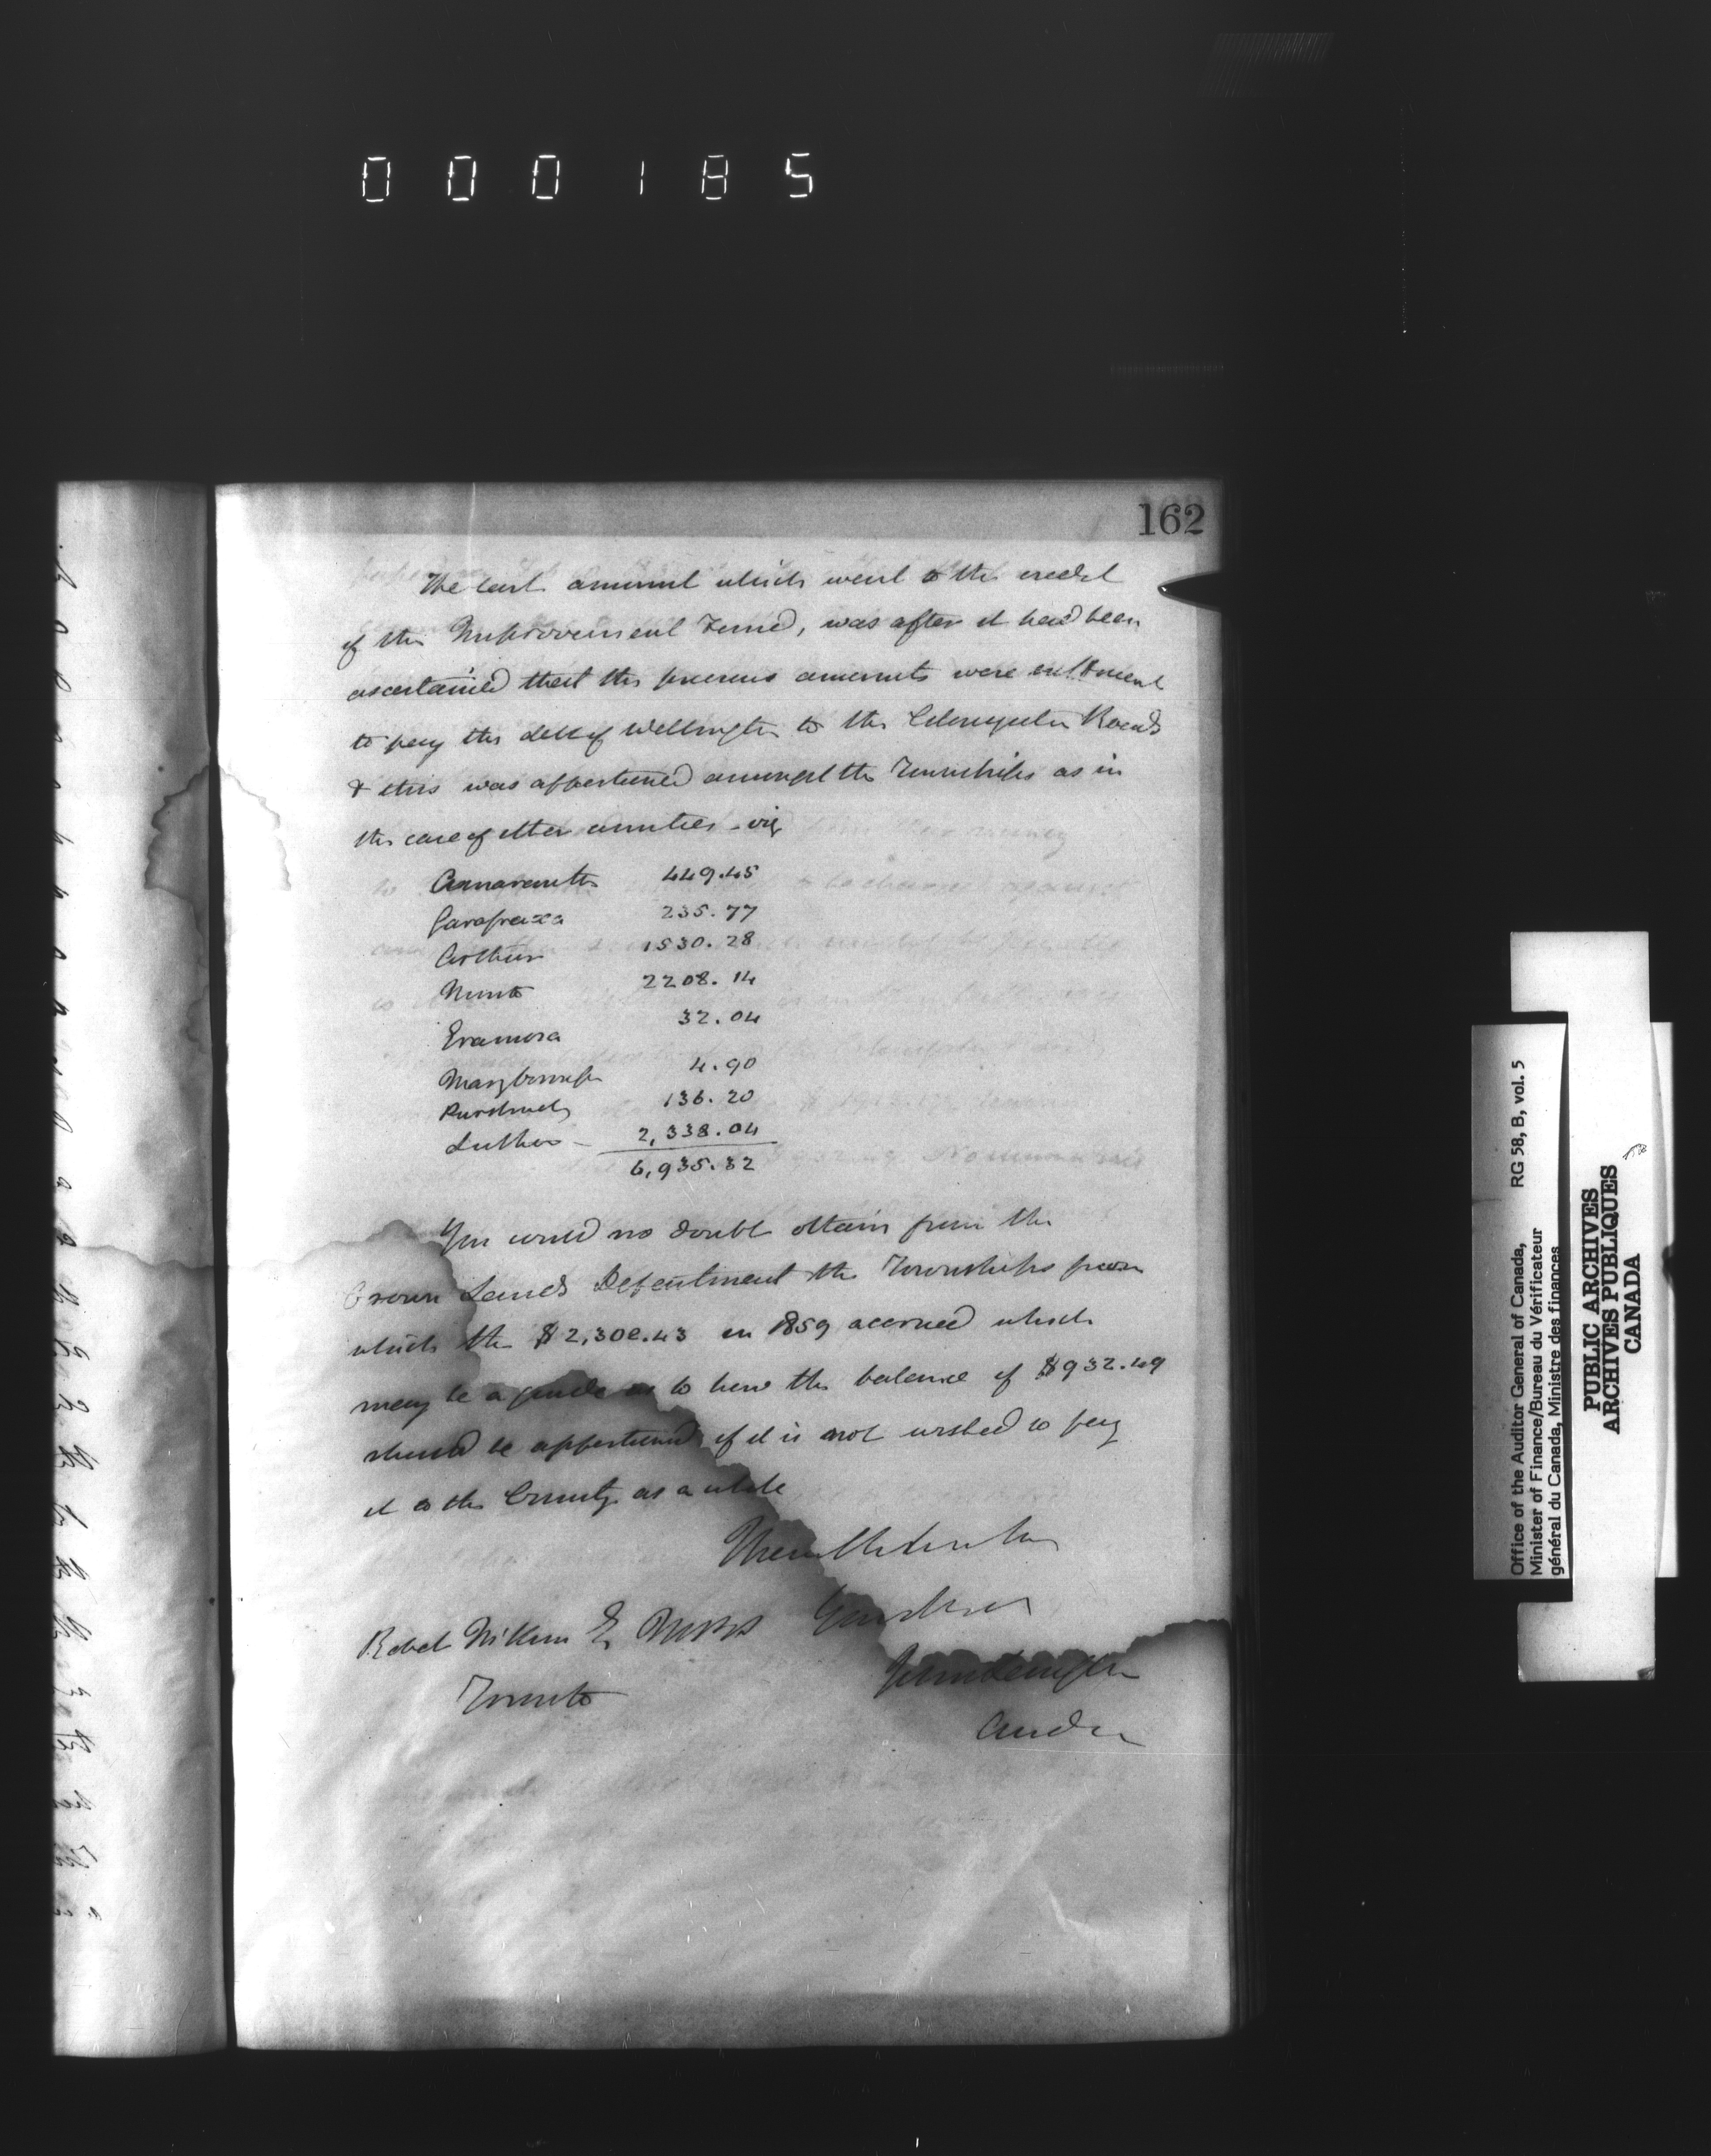 000185
162
The last amount which went to the credit
of the Improvement Fund, was after it had been
ascertained that the previous amounts were sufficient
to pay the debt of Wellington to the Colonization Roads
& this was apportioned amongst the Townships as in
the case of other counties - viz
Amaranth 449.45
Garafraxa 235.77
Arthur 1530.28
Minto 2208.14
Eramosa 32.04
Maryborough 4.90
Puslinch 136.20
Luther - 2,338.04
6,935.32
You could no doubt obtain from the
Crown Lands Department the Townships from
which the $2,302.43 in 1859 accrued which
may be a guide as to how the balance of $932.49
should be apportioned if it is not wished to pay
it to the County as a whole
Robert William E
Toronto
John Langton
Auditor
Office of the Auditor General of Canada, RG 58, B, vol. 5
Minister of Finance/Bureau du Vérificateur
général du Canada, Ministre des finances
PUBLIC ARCHIVES
ARCHIVES PUBLIQUES
CANADA